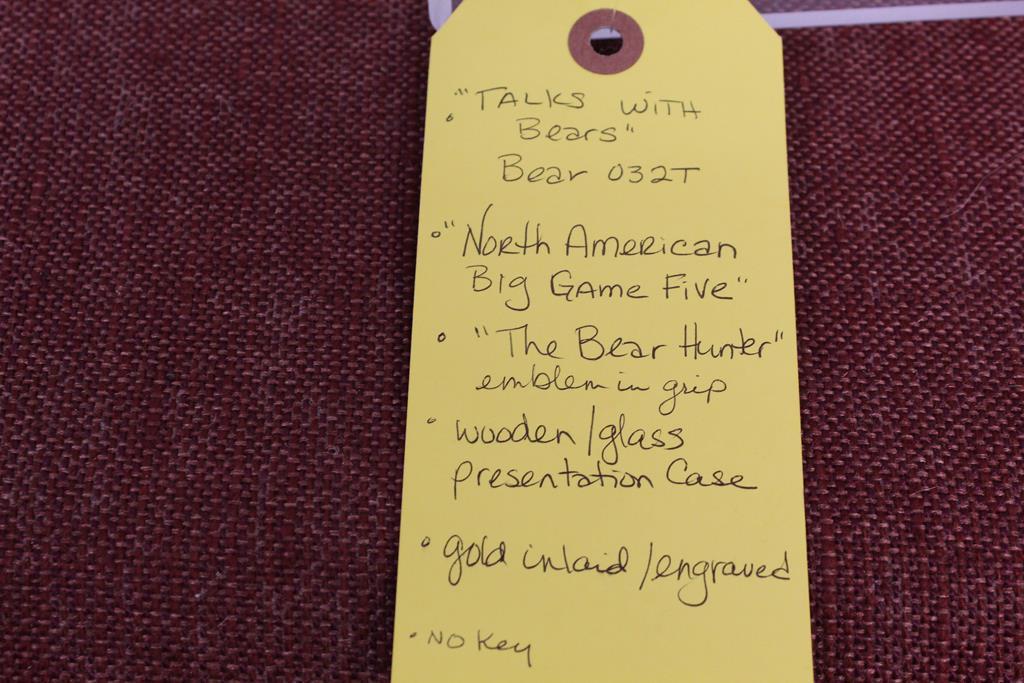 • "TALKS WITH
Bears"
Bear 032T
• "North American
Big Game Five"
• "The Bear Hunter"
emblem in grip
• wooden/glass
presentation Case
• gold inlaid/engraved
• NO Key